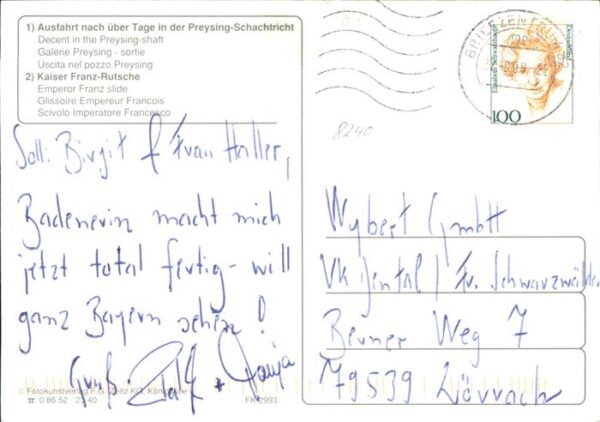 1) Ausfahrt nach über Tage in der Preysing-Schachtricht
Decent in the Preysing-shaft
Galerie Preysing - sortie
Uscita nel pozzo Preysing
2) Kaiser Franz-Rutsche
Emperor Franz slide
Glissoire Empereur Francois
Scivolo Imperatore Francesco
Birgit
Badenerin macht mich
jetzt total fertig - will
ganz Bayern sehen!
Gruß + Tanja
© Fotokunstverlag F.G. Zeitz KG,
☎ 0 86 52 - 23 40
FK 2993
BRIEFZENTRUM
Elisabeth Schwarzhaupt
100
8240
Wybert GmbH
VK Dental / Fr. Schwarzwälder
Berner Weg 7
79539 Lörrach